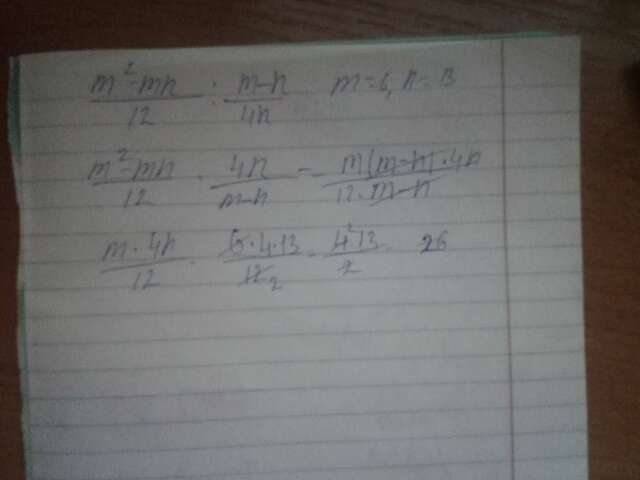 m²-mn/12 : m-n/4n m=6, n=13
m²-mn/12 · 4n/m-n = m(m-n)·4n/12·m-n
m·4n/12 = 6·4·13/12 2 = 4²·13/2 = 26